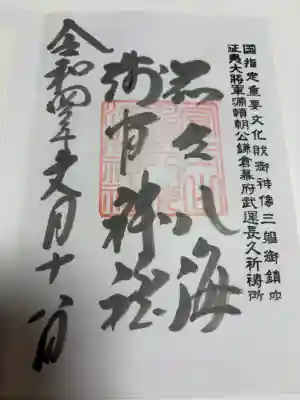 国指定重要文化財御神像三躯御鎮座
征夷大將軍源頼朝公鎌倉幕府武運長久祈祷所
忍野八海
浅間神社
令和四年文月十八日